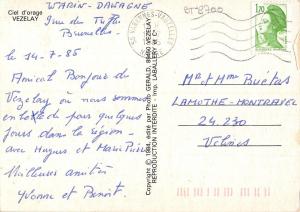 Ciel d'orage
VEZELAY
WARIN - DAWAGNE
Bruxelles -
le 14-7-85
Amical Bonjour de
Vezelay où nous sommes
en hôtel pour quelques
jours dans la région -
avec Hugues et Marie
Meilleures amitiés
Yvonne et Benoit.
Copyright © 1984, édité par Photo GERALD, 89450 VEZELAY
REPRODUCTION INTERDITE - Imp. LABALLERY et C
1,70
Mr et Mme
LAMOTHE - MONTRAVEL
24.230
Velines